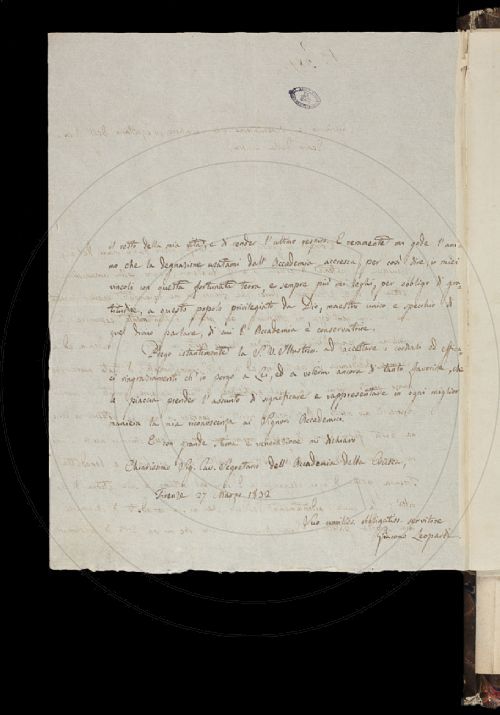 il resto della mia vita, e di render l'ultimo respiro. E veramente mi gode l'ani-
mo che la degnazione usatami dall'Accademia accresca, per così dire, i miei
vincoli con questa fortunata terra, e sempre più mi leghi, per obbligo di gra-
titudine, a questo popolo privilegiato da Dio, maestro unico e specchio di
quel divino parlare, di cui l'Accademia è conservatrice.
Prego istantemente la S. V. Illustriss. ad accettare i cordiali ed effica-
ci ringraziamenti ch'io porgo a Lei, ed a volermi ancora di tanto favorire, che
le piaccia prender l'assunto di significare e rappresentare in ogni miglior
maniera la mia riconoscenza ai Signori Accademici.
E con grande stima e venerazione mi dichiaro
Chiarissimo Sig. Cav. Segretario dell'Accademia della Crusca,
Firenze 27 Marzo 1832
Suo umiliss. obbligatiss. servitore
Giacomo Leopardi